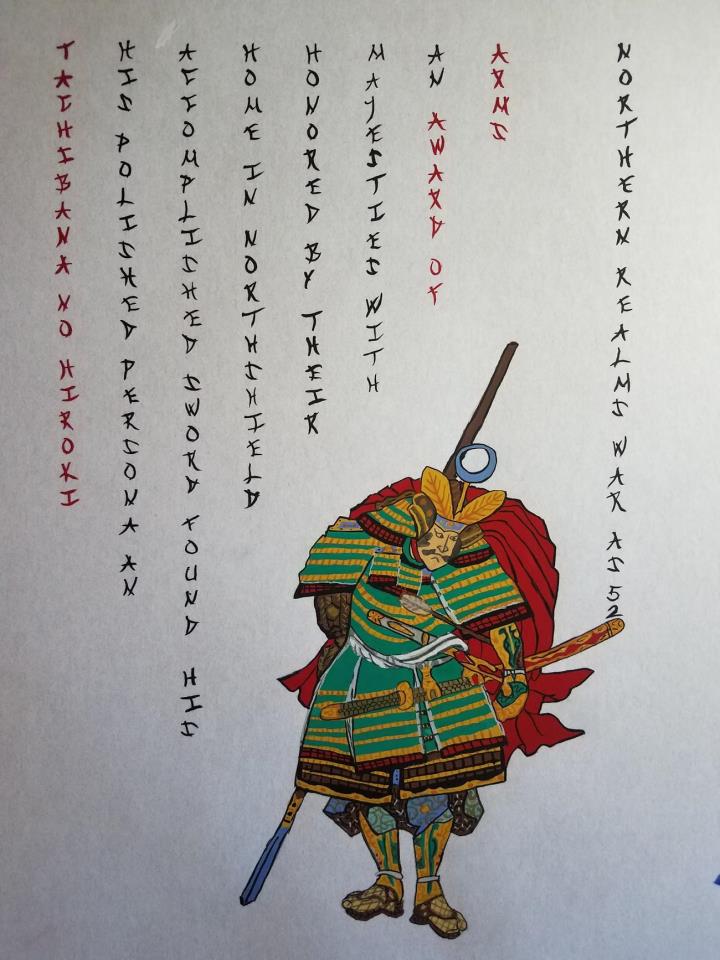 TACHIBANA NO HIROKI
HIS POLISHED PERSONA AN
ACCOMPLISHED SWORD FOUND HIS
HOME IN NORTHSHIELD
HONORED BY THEIR
MAJESTIES WITH
AN AWARD OF
ARMS
NORTHERN REALMS WAR AS 52